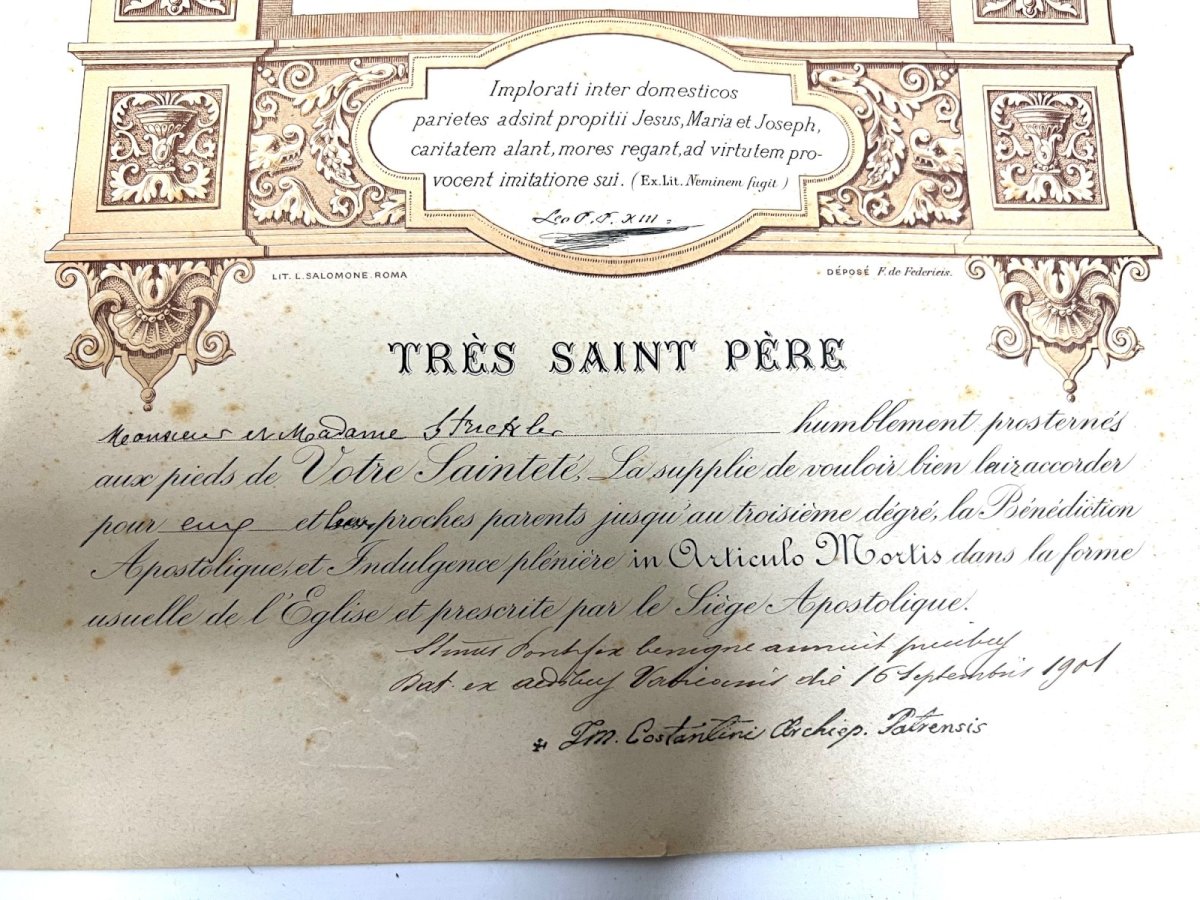 Implorati inter domesticos
parietes adsint propitii Jesus, Maria et Joseph,
caritatem alant, mores regant, ad virtutem pro-
vocent imitatione sui. (Ex. Lit. Neminem fugit)
Leo P. P. XIII.
LIT. L. SALOMONE. ROMA
DÉPOSÉ F. de Federicis.
TRÈS SAINT PÈRE
Monsieur et Madame Strickler humblement prosternés
aux pieds de Votre Sainteté, La supplie de vouloir bien leur accorder
pour eux et leurs proches parents jusqu'au troisième dégré, la Bénédiction
Apostolique, et Indulgence plénière in Articulo Mortis dans la forme
usuelle de l'Eglise et prescrite par le Siège Apostolique.
SSmus Pontifex benigne annuit precibus
Dat. ex aedibus Vaticanis die 16 Septembris 1901
✠ Im. Costantini Archiep. Patrensis